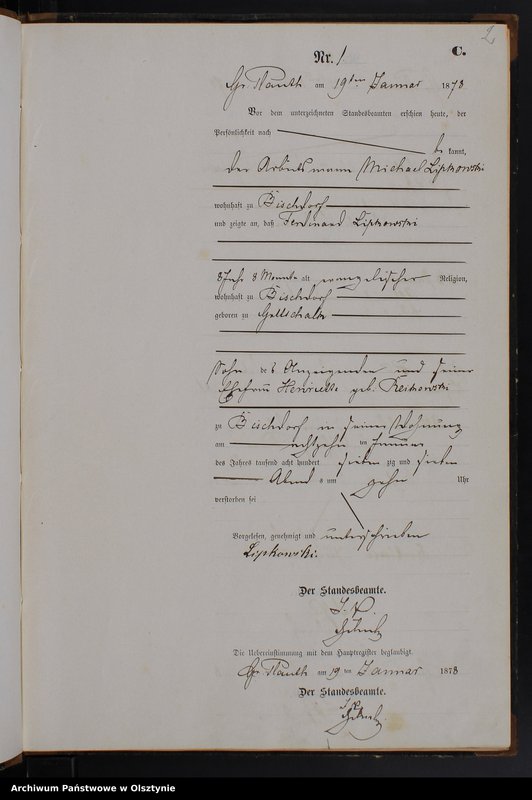 2
C.
Nr. 1
Gr. Plauth am 19ten Januar 1878
Vor dem unterzeichneten Standesbeamten erschien heute, der
Persönlichkeit nach
be kannt,
der Arbeitsmann Michael Lipkowski
wohnhaft zu Bischdorf
und zeigte an, daß Ferdinand Lipkowski
8 Jahr 8 Monate alt evangelischer Religion,
wohnhaft zu Bischdorf
geboren zu
Sohn des Anzeigenden und seiner
Ehefrau Henriette geb. Reskowski
zu Bischdorf in seiner Wohnung
am achtzehn ten Januar
des Jahres tausend acht hundert sieben zig und sieben
Abend s um zehn Uhr
verstorben sei
Vorgelesen, genehmigt und unterschrieben
Lipkowski.
Der Standesbeamte.
Die Uebereinstimmung mit dem Hauptregister beglaubigt.
Gr. Plauth am 19 ten Januar 1878
Der Standesbeamte.
Archiwum Państwowe w Olsztynie